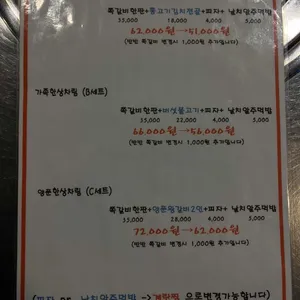 쪽갈비한판+불고기김치전골+피자+ 날치알주먹밥
35,000 18,000 4,000 5,000
62,000원→51,000원
(반반 쪽갈비 변경시 1,000원 추가됩니다)
가족한상차림 (B세트)
쪽갈비한판+버섯불고기+피자+ 날치알주먹밥
35,000 22,000 4,000 5,000
66,000원→56,000원
(반반 쪽갈비 변경시 1,000원 추가됩니다)
영문한상차림 (C세트)
쪽갈비한판+영문등갈비2인+피자+ 날치알주먹밥
35,000 28,000 4,000 5,000
72,000원→62,000원
(반반 쪽갈비 변경시 1,000원 추가됩니다)
(피자 or 날치알주먹밥 ->계란찜 으로변경가능합니다)